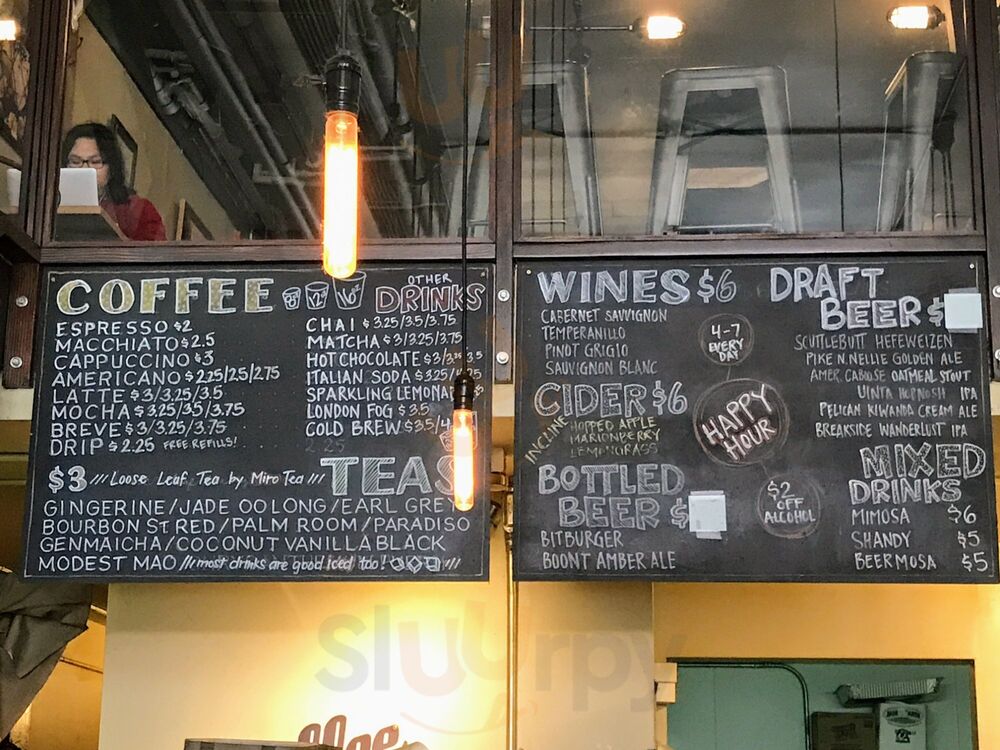 COFFEE 8oz 12oz 16oz
ESPRESSO $2
MACCHIATO $2.5
CAPPUCCINO $3
AMERICANO $2.25/2.5/2.75
LATTE $3/3.25/3.5
MOCHA $3.25/3.5/3.75
BREVE $3/3.25/3.75
DRIP $2.25 FREE REFILLS!
OTHER
DRINKS
CHAI $3.25/3.5/3.75
MATCHA $3/3.25/3.75
HOT CHOCOLATE
ITALIAN SODA
SPARKLING
LONDON FOG $3.5
COLD BREW
$3 /// Loose Leaf Tea by Miro Tea /// TEAS
GINGERINE/JADE OOLONG/EARL GREY
BOURBON ST RED/PALM ROOM/PARADISO
GENMAICHA/COCONUT VANILLA BLACK
MODEST MAO /// most drinks are good iced too!
WINES $6
CABERNET SAUVIGNON
TEMPERANILLO
PINOT GRIGIO
SAUVIGNON BLANC
CIDER $6
INCLINE
HOPPED APPLE
MARIONBERRY
LEMONGRASS
BOTTLED
BEER $
BITBURGER
BOONT AMBER ALE
4-7
EVERY
DAY
HAPPY
HOUR
$2
OFF
ALCOHOL
DRAFT
BEER $
SCUTTLEBUTT HEFEWEIZEN
PIKE N. NELLIE GOLDEN ALE
AMER. CABOOSE OATMEAL STOUT
UINTA HOPNOSH IPA
PELICAN KIWANDA CREAM ALE
BREAKSIDE WANDERLUST IPA
MIXED
DRINKS
MIMOSA $6
SHANDY $5
BEERMOSA $5
Sluurpy